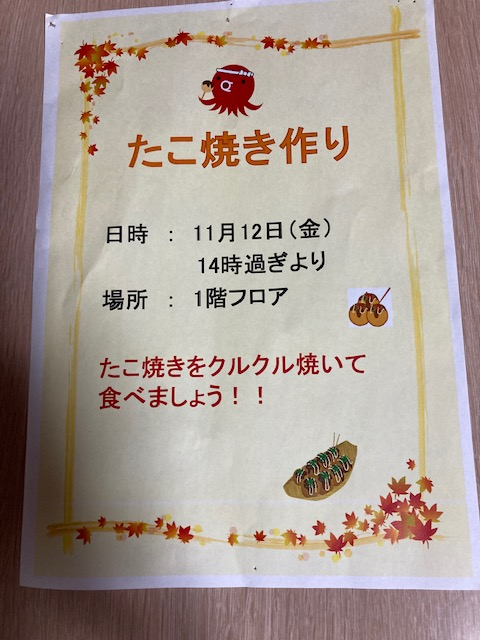 たこ焼き作り
日時 ： 11月12日（金）
14時過ぎより
場所 ： 1階フロア
たこ焼きをクルクル焼いて
食べましょう！！